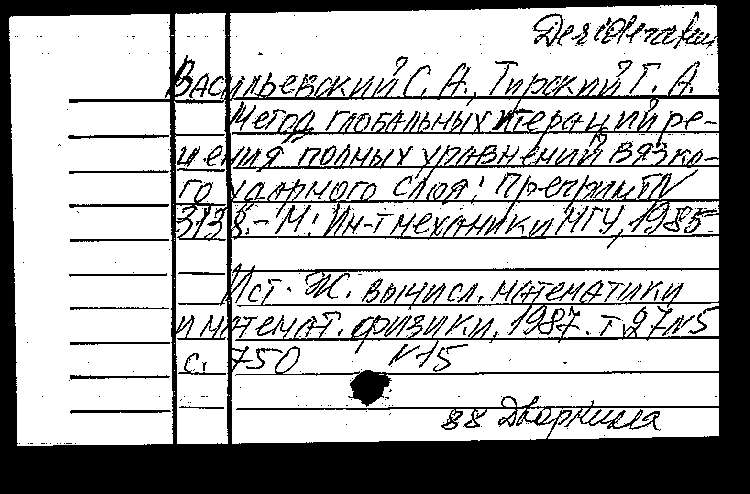 Васильевский С. А., Тирский Г. А.
Метод глобальных итераций ре-
шения полных уравнений вязко-
го ударного слоя: Препринт N
3138. - М: Ин-т механики МГУ, 1985
Ист. Ж. вычисл. математики
и математ. физики. 1987. т 27 N5
с. 750 к15
88 Дворкина